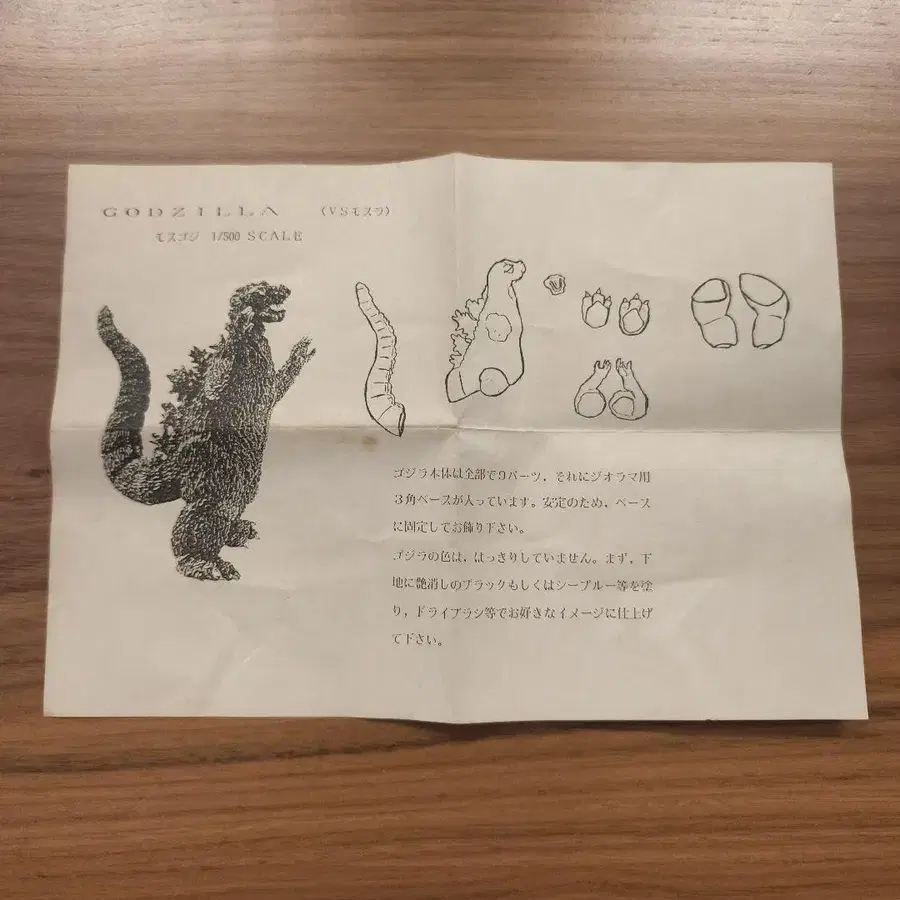 GODZILLA （VSモスラ）
モスゴジ 1/500 SCALE
ゴジラ本体は全部で9パーツ，それにジオラマ用
３角ベースが入っています。安定のため，ベース
に固定してお飾り下さい。
ゴジラの色は，はっきりしていません。まず，下
地に艶消しのブラックもしくはシーブルー等を塗
り，ドライブラシ等でお好きなイメージに仕上げ
て下さい。